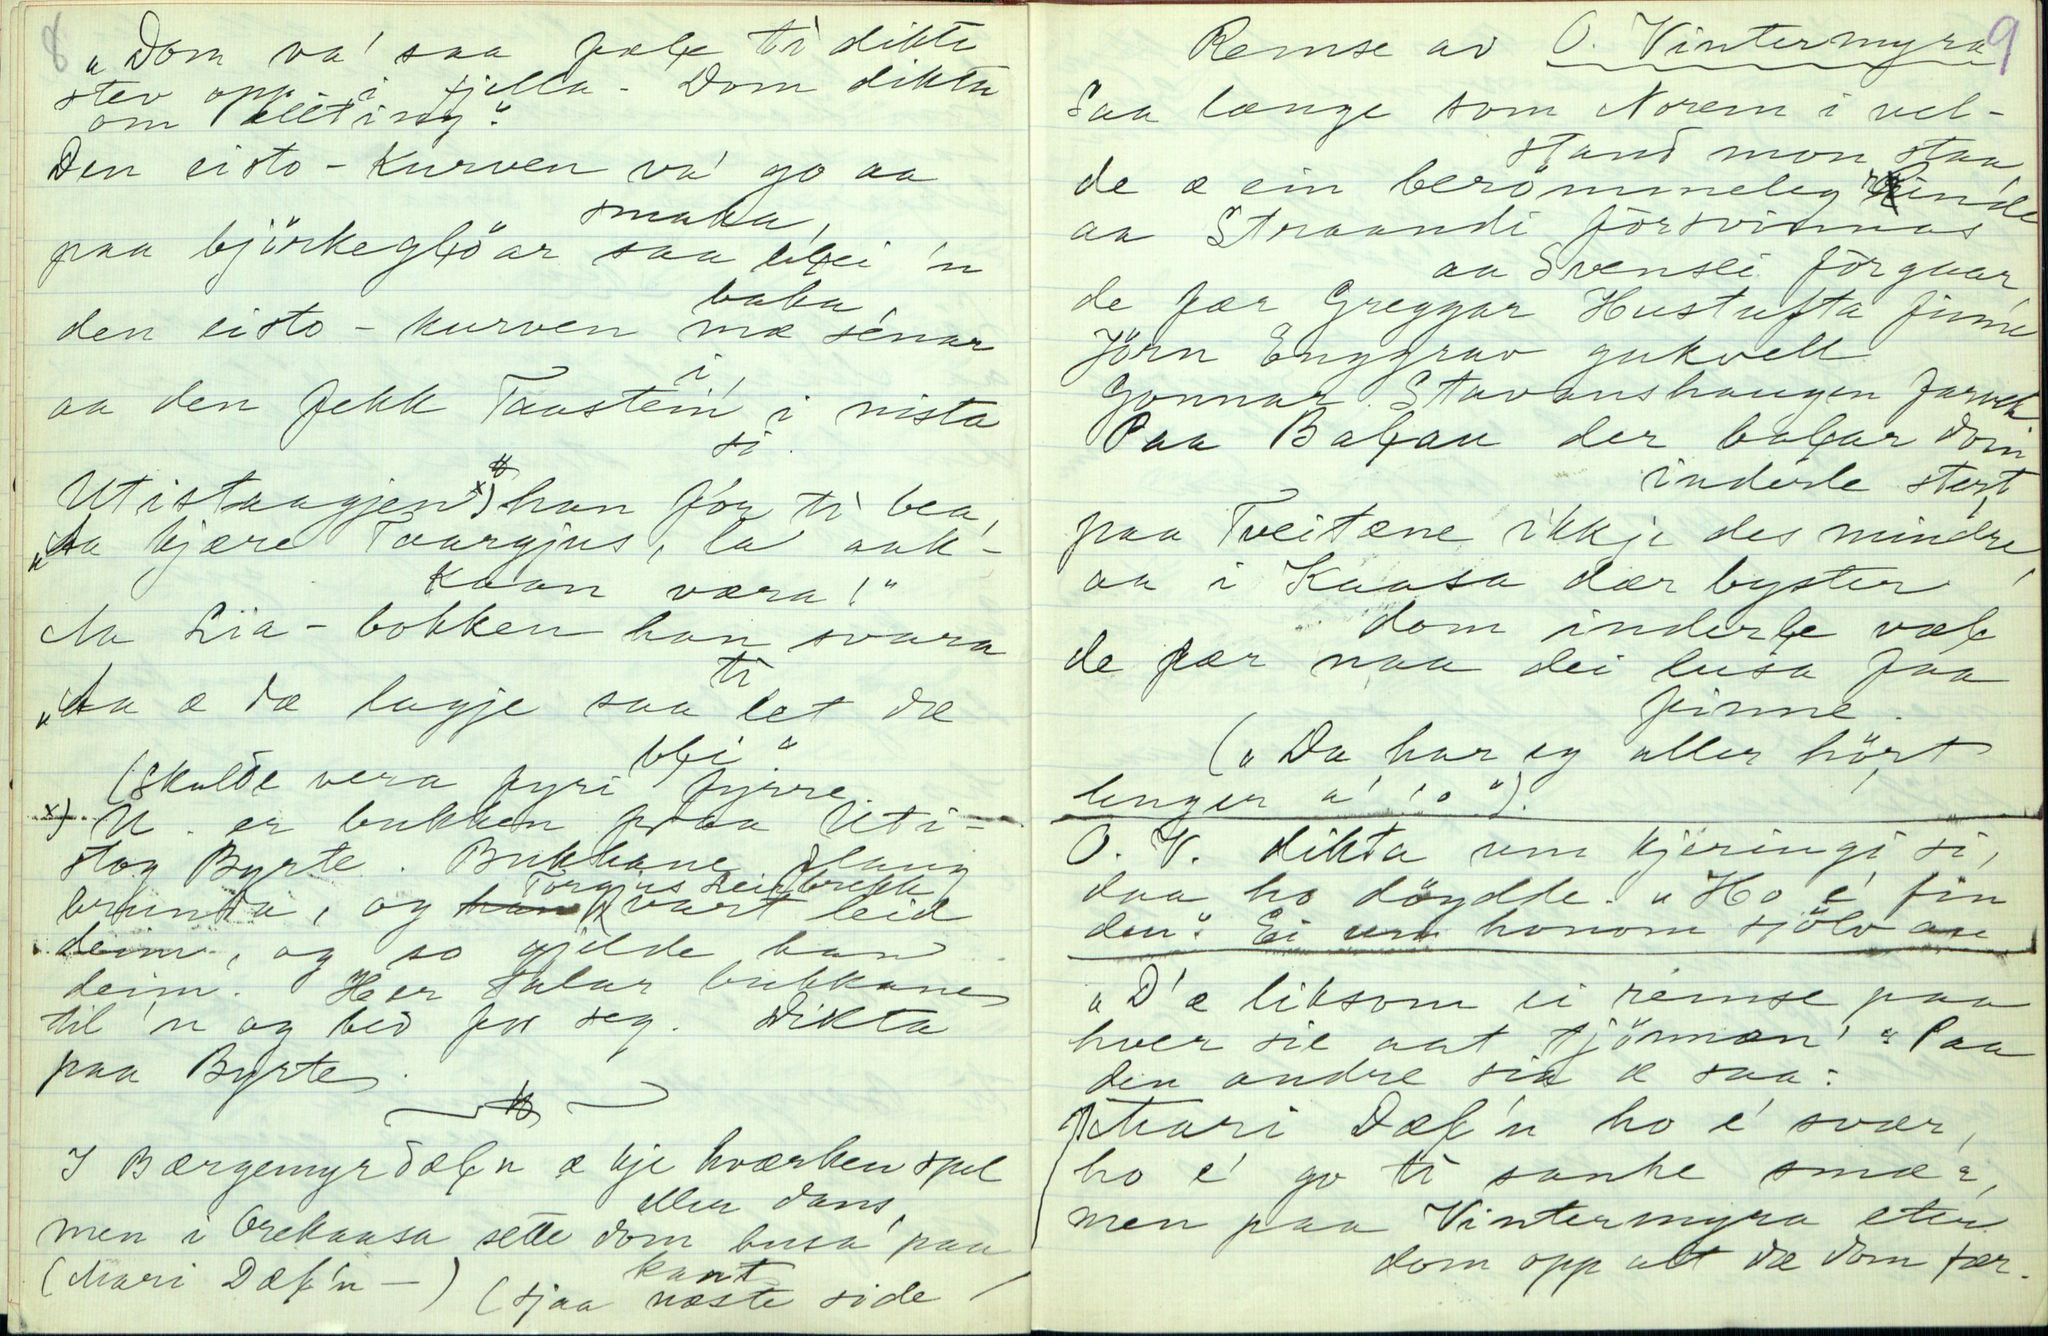 8
„Dom va' saa fale ti dikte
stev opp i fjella. Dom dikta
om allting".
Den eisto-kurven va' go aa
smaka,
paa björkeglöar saa blei 'n
baka,
den eisto-kurven mæ sénar
i,
aa den fekk Taastein i nista
si.
Utistaagjen x) han fór ti bea,
„Aa kjære Taargjus, la aak-
kaan væra!"
Aa Lia-bokken han svara
ti
„Aa æ dæ lagje saa let dæ
bli"
(Skulde vera fyri fyrre.
x) U. er bukken paa Uti-
stog Byrte. Bukkane slang
brunda, og Torgjus Leirbrekk vart leid
deim, og so gjelde han
deim. Her talar bukkane
til 'n og bed for seg. Dikta
paa Byrte.
I Bærgemyrdæl'n æ kje hværken spel
eller dans,
men i Orekaasa sette dom busa' paa
kant
(Mari Dæl'n —) (sjaa næste side
9
Remse av O. Vintermyra
Saa længe som Norem i vel-
stand mon staa
de æ ein berömmeleg rinde
aa Straandi forsvinnas
aa Svensei forgaar,
de fær Greggar Hustufta finne
Jörn Enggrav gukvell
Gonnar Stavanshaugen farvel
Paa Balau der balar dom
inderle stort,
paa Tveitene ikkje des mindre,
aa i Kaasa dær byster
dom inderle væl
de fær naa dei lusa paa
finne.
(„Da har eg aller hört
lenger a' 'o").
O. V. dikta um kjeringi si,
daa ho döydde. „Ho é fin
den". Ei um honom sjölv au
„D'æ liksom ei remse paa
hver sie aat tjönnæn'" Paa
den andre sia æ saa:
Mari Dæl'n ho é svær,
ho é go ti sanke smæ'r,
men paa Vintermyra eter
dom opp alt dæ dom fær.